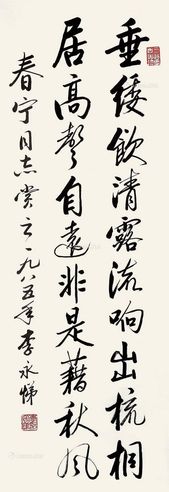 垂緌飲清露流响出梳桐
居高聲自遠非是藉秋风
春宁同志赏之一九八五年李永悌